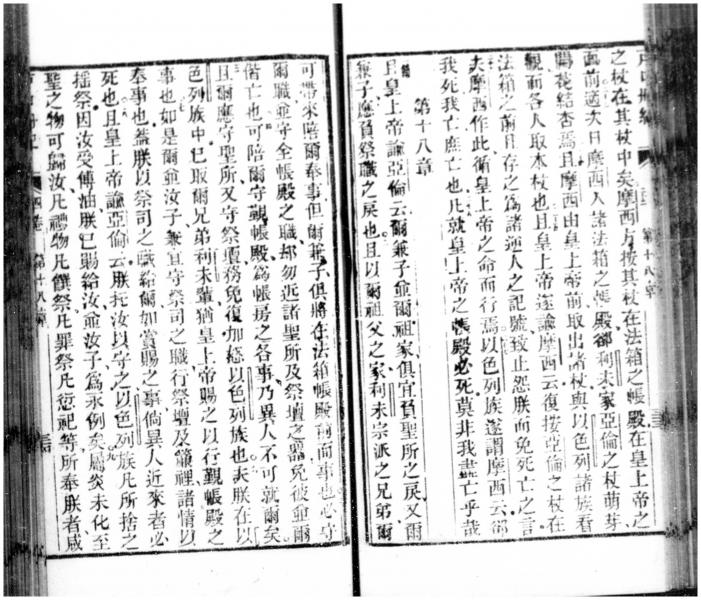 之杖在其杖中矣摩西方按其杖在法箱之帳殿在皇上帝之
面前過次日摩西人諸法箱之帳殿卻利未家亞倫之杖萌芽
開花結杏焉且摩西由皇上帝前取出諸杖與以色列諸族看
觀而各人取本杖也且皇上帝遂諭摩西云復接亞倫之杖在
法箱之前且存之爲諸逆人之記號致止怨朕而免死亡之言
夫摩西作此循皇上帝之命而行焉以色列族遂謂摩西云卻
我死我亡庶亡也凡就皇上帝之帳殿必死莫非我盡亡乎哉
第十八章
且皇上帝諭亞倫云爾兼子並爾祖家俱宜負聖所之戾又爾
兼子應負祭職之戾也且以爾祖父之家利未宗派之兄弟爾
可帶來陪爾奉事但爾兼子俱將在法箱帳殿前而事也必守
爾職並守全帳殿之職卻勿近諸聖所及祭壇之器免彼並爾
偕亡也可陪爾守觀帳殿爲帳房之各事乃異人不可就爾矣
且爾應守聖所又守祭壇務免復加怒以色列族也夫朕在以
色列族中已取爾兄弟利未輩猶皇上帝賜之以行觀帳殿之
事也如是爾並汝子兼宜守祭司之職行祭壇及簾裡諸情以
奉事也蓋朕以祭司之職給爾如賞賜之事倘異人近來者必
死也且皇上帝諭亞倫云朕托汝以守之以色列族凡所捨之
搖祭因汝受傅油朕已賜給汝並汝子爲永例矣屬炎未化至
聖之物可歸汝凡禮物凡饌祭凡罪祭凡愆祀等所奉朕者咸
四卷 第十八章